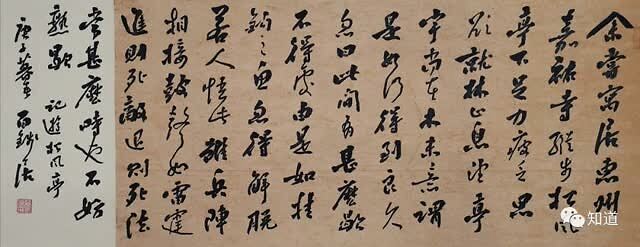 余嘗寓居惠州
嘉祐寺縱步松風
亭下足力疲乏思
欲就林止息望亭
宇尚在木末意謂
是如何得到良久
忽曰此間有甚麽歇
不得處由是如挂
鈎之魚忽得解脫
若人悟此雖兵陣
相接鼓聲如雷霆
進則死敵退則死法
當甚麽時也不妨
熟歇 記遊松風亭
庚子
知道